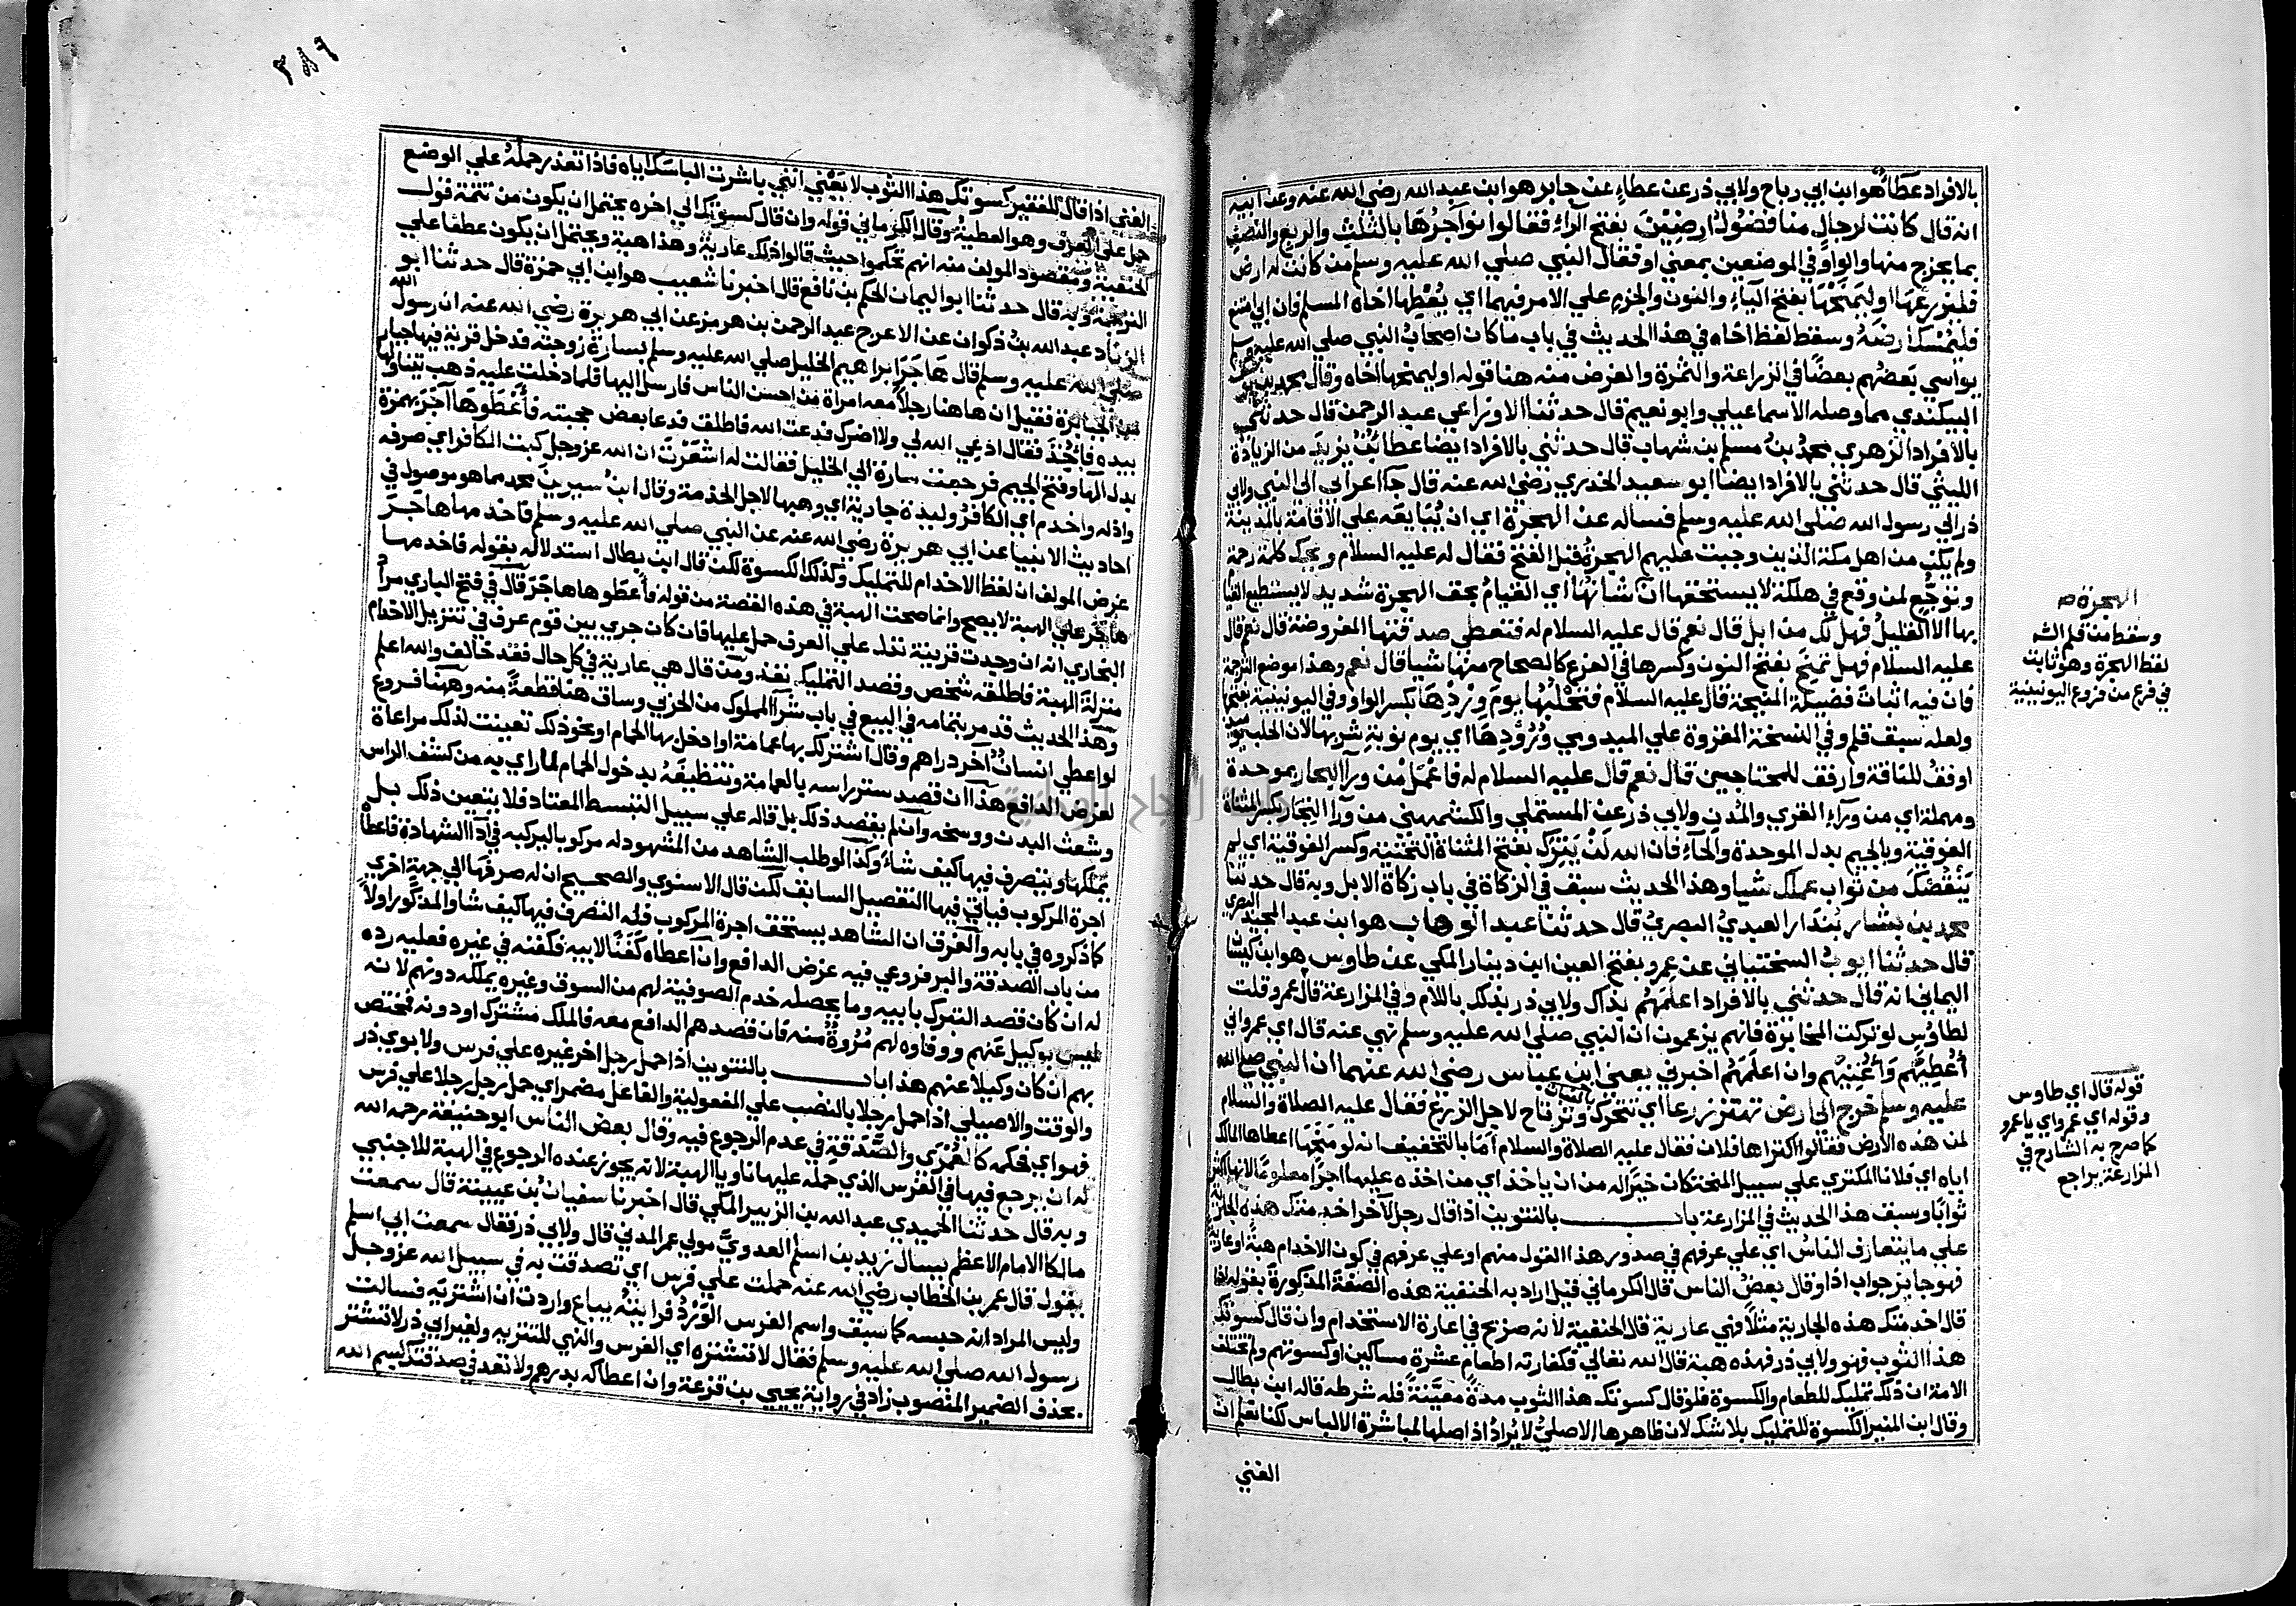 بالافراد عطاء هو ابن ابي رباح ولابي ذر عن عطاء عن جابر هو ابن عبد الله رضي الله عنه وعن ابيه
انه قال كانت لرجال منا فضول ارضين بفتح الراء فقالوا نواجرها بالثلث والربع والنصف
بما يخرج منها والواو في الموضعين بمعني او فقال النبي صلي الله عليه وسلم من كانت له ارض
فليزرعها او ليمنحها بفتح الياء والنون والجزم علي الامر فيهما اي يعطها اخاه المسلم فان ابي امتنع
فليمسك ارضه وسقط لفظ اخاه في هذا الحديث في باب ما كان اصحاب النبي صلي الله عليه وسلم
يواسي بعضهم بعضا في الزراعة والثمرة والغرض منه هنا قوله او ليمنحها اخاه وقال محمد بن يوسف
البيكندي مما وصله الاسماعيلي وابو نعيم قال حدثنا الاوزاعي عبد الرحمن قال حدثني
بالافراد الزهري محمد بن مسلم بن شهاب قال حدثني بالافراد ايضا عطا بن يزيد من الزيادة
الليثي قال حدثني بالافراد ايضا ابو سعيد الخدري رضي الله عنه قال جا اعرابي الي النبي ولابي
ذر الي رسول الله صلي الله عليه وسلم فساله عن الهجرة اي ان يبايعه علي الاقامة بالمدينة
ولم يكن من اهل مكة الذين وجبت عليهم الهجرة قبل الفتح فقال له عليه السلام ويحك كلمة رحمة
وتوجع لمن وقع في هلكة لا يستحقها ان شانها اي القيام بحق الهجرة شديد لا يستطيع القيام
بها الا القليل فهل لك من ابل قال نعم قال عليه السلام له فتعطي صدقتها المفروضة قال نعم قال
عليه السلام فهل تمنح بفتح النون وكسرها في الفرع كالصحاح منها شيا قال نعم وهذا موضع الترجمة
فان فيه اثبات فضيلة المنيحة قال عليه السلام فتحلبها يوم وردها بكسر الواو وفي اليونينية بفتحها
ولعله سبق قلم وفي النسخة المقروة علي الميدومي ورودها اي يوم نوبة شربها لان الحلب يومئذ
اوفق للناقة وارفق للمحتاجين قال نعم قال عليه السلام له فاعمل من ورآ البحار بموحدة
ومهملة اي من ورآء القري والمدن ولابي ذر عن المستملي والكشميهني من ورآ التجار بكسر المثناة
الفوقية وبالجيم بدل الموحدة والحآء فان الله لن يترك بفتح المثناة التحتية وكسر الفوقية اي لن
ينقصك من ثواب عملك شيا وهذا الحديث سبق في الزكاة في باب زكاة الابل وبه قال حدثنا
محمد بن بشار بندار العبدي البصري قال حدثنا عبد الوهاب هو ابن عبد المجيد البصري
قال حدثنا ايوب السختياني عن عمرو بفتح العين ابن دينار المكي عن طاوس هو ابن كيسان
اليماني انه قال حدثني بالافراد اعلمهم بذاك ولابي ذر بذلك باللام وفي المزارعة قال عمرو قلت
لطاوس لو تركت المخابرة فانهم يزعمون ان النبي صلي الله عليه وسلم نهي عنه قال اي عمرو اني
اعطيهم واغنيهم وان اعلمهم اخبرني يعني ابن عباس رضي الله عنهما ان النبي صلي الله
عليه وسلم خرج الي ارض تهتز زرعا اي تتحرك وترتاح لاجل الزرع فقال عليه الصلاة والسلام
لمن هذه الارض فقالوا اكتراها فلان فقال عليه الصلاة والسلام اما بالتخفيف انه لو منحها اعطاها المالك
اياه اي فلانا المكتري علي سبيل المنحة كان خيرا له من ان ياخذ اي من اخذه عليها اجرا معلوما لانها اكثر
ثوابا وسبق هذا الحديث في المزارعة باب بالتنوين اذا قال رجل لاخر اخدمتك هذه الجارية
علي ما يتعارف الناس اي علي عرفهم في صدور هذا القول منهم او علي عرفهم في كون الاخدام هبة او عارية
فهو جايز جواب اذا وقال بعض الناس قال الكرماني قيل اراد به الحنفية هذه الصفة المذكورة بقوله اذا
قال اخدمتك هذه الجارية مثلا فهي عارية قال الحنفية لانه صريح في اعارة الاستخدام وان قال كسوتك
هذا الثوب فهو ولابي ذر فهذه هبة قال الله تعالي فكفارته اطعام عشرة مساكين او كسوتهم ولم تختلف
الامة ان ذلك تمليك للطعام والكسوة فلو قال كسوتك هذا الثوب مدة معينة فله شرطه قاله ابن بطال
وقال ابن المنير الكسوة للتمليك بلا شك لان ظاهرها الاصلي لا يراد اذ اصلها لمباشرة الالباس لكنا نعلم ان
الغني
الهجرة صح
وسقط من قلم الشـ
لفظ الهجرة وهو ثابت
في فرع من فروع اليونينية
قوله قال اي طاوس
وقوله اي عمرو اي يا عمرو
كما صرح به الشارح في
المزارعة يراجع
٣٨٦
الغني اذا قال للفقير كسوتك هذا الثوب لا يعني انني باشرت الباسك اياه فاذا تعذر حمله علي الوضع
حمل علي العرف وهو العطية وقال الكرماني قوله وان قال كسوتك الي اخره يحتمل ان يكون من تتمة قول
الحنفية ومقصود المولف منه انهم تحكموا حيث قالوا ذلك عارية وهذا هبة ويحتمل ان يكون عطفا علي
الترجمة وبه قال حدثنا ابو اليمان الحكم بن نافع قال اخبرنا شعيب هو ابن ابي حمزة قال حدثنا ابو
الزناد عبد الله بن ذكوان عن الاعرج عبد الرحمن بن هرمز عن ابي هريرة رضي الله عنه ان رسول الله
صلي الله عليه وسلم قال هاجر ابراهيم الخليل صلي الله عليه وسلم بسارة زوجته فدخل قرية فيها جبار
من الجبابرة فقيل ان هاهنا رجلا معه امراة من احسن الناس فارسل اليها فلما دخلت عليه ذهب يتناولها
بيده فاخذ فقال ادعي الله لي ولا اضرك فدعت الله فاطلق فدعا بعض حجبته فاعطوها آجر بهمزة
بدل الها وفتح الجيم فرجعت سارة الي الخليل فقالت له اشعرت ان الله عز وجل كبت الكافر اي صرفه
واذله واخدم اي الكافر وليدة جارية اي وهبها لاجل الخدمة وقال ابن سيرين محمد مما هو موصول في
احاديث الانبيا عن ابي هريرة رضي الله عنه عن النبي صلي الله عليه وسلم فاخدمها هاجر
غرض المولف ان لفظ الاخدام للتمليك وكذلك الكسوة لكن قال ابن بطال استدلاله بقوله فاخدمها
هاجر علي الهبة لا يصح وانما صحت الهبة في هذه القصة من قوله فاعطوها هاجر قال في فتح الباري مراد
البخاري انه ان وجدت قرينة تدل علي العرف حمل عليها فان كان جري بين قوم عرف في تنزيل الاخدام
منزلة الهبة فاطلقه شخص وقصد التمليك نفذ ومن قال هي عارية في كل حال فقد خالف والله اعلم
وهذا الحديث قد مر بتمامه في البيع في باب شرآ المملوك من الحربي وساق هنا قطعة منه وههنا فروع
لو اعطي انسان آخر دراهم وقال اشتر لك بها عمامة او ادخل بها الحمام او نحو ذلك تعينت لذلك مراعاة
لغرض الدافع هذا ان قصد ستر راسه بالعمامة وتنظيفه بدخول الحمام لما راي به من كشف الراس
وشعث البدن ووسخه وان لم يقصد ذلك بل قاله علي سبيل التبسط المعتاد فلا يتعين ذلك بل
يملكها ويتصرف فيها كيف شاء وكذا لو طلب الشاهد من المشهود له مركوبا ليركبه في ادا الشهادة فاعطاه
اجرة المركوب فياتي فيها التفصيل السابق لكن قال الاسنوي والصحيح ان له صرفها الي جهة اخري
كما ذكروه في بابه والفرق ان الشاهد يستحق اجرة المركوب فله التصرف فيها كيف شا والمذكور اولا
من باب الصدقة والبر فروعي فيه غرض الدافع وان اعطاه كفنا لابيه فكفنه في غيره فعليه رده
له ان كان قصد التبرك بابيه وما يحصله خدم الصوفية لهم من السوق وغيره يملكه دونهم لانه
ليس بوكيل عنهم ووفاوه لهم مروة منه فان قصدهم الدافع معه فالملك مشترك او دونه فمختص
بهم ان كان وكيلا عنهم هذا باب بالتنوين اذا حمل رجل اخر غيره علي فرس ولابوي ذر
والوقت والاصيلي اذا حمل رجلا بالنصب علي المفعولية والفاعل مضمر اي حمل رجل رجلا علي فرس
فهو اي فحكمه كالعمري والصدقة في عدم الرجوع فيه وقال بعض الناس ابو حنيفة رحمه الله
له ان يرجع فيها في الفرس الذي حمله عليها ناويا الهبة لانه يجوز عنده الرجوع في الهبة للاجنبي
وبه قال حدثنا الحميدي عبد الله بن الزبير المكي قال اخبرنا سفيان بن عيينة قال سمعت
مالكا الامام الاعظم يسال زيد بن اسلم العدوي مولي عمر المدني قال ولابي ذر فقال سمعت ابي اسلم
يقول قال عمر بن الخطاب رضي الله عنه حملت علي فرس اي تصدقت به في سبيل الله عز وجل
وليس المراد انه حبسه كما سبق واسم الفرس الورد فرايته يباع واردت ان اشتريه فسالت
رسول الله صلي الله عليه وسلم فقال لا تشتره اي الفرس والنهي للتنزيه ولغير ابي ذر لا تشتر
بحذف الضمير المنصوب زاد في رواية يحيي بن قزعة وان اعطاكه بدرهم ولا تعد في صدقتك بسم الله